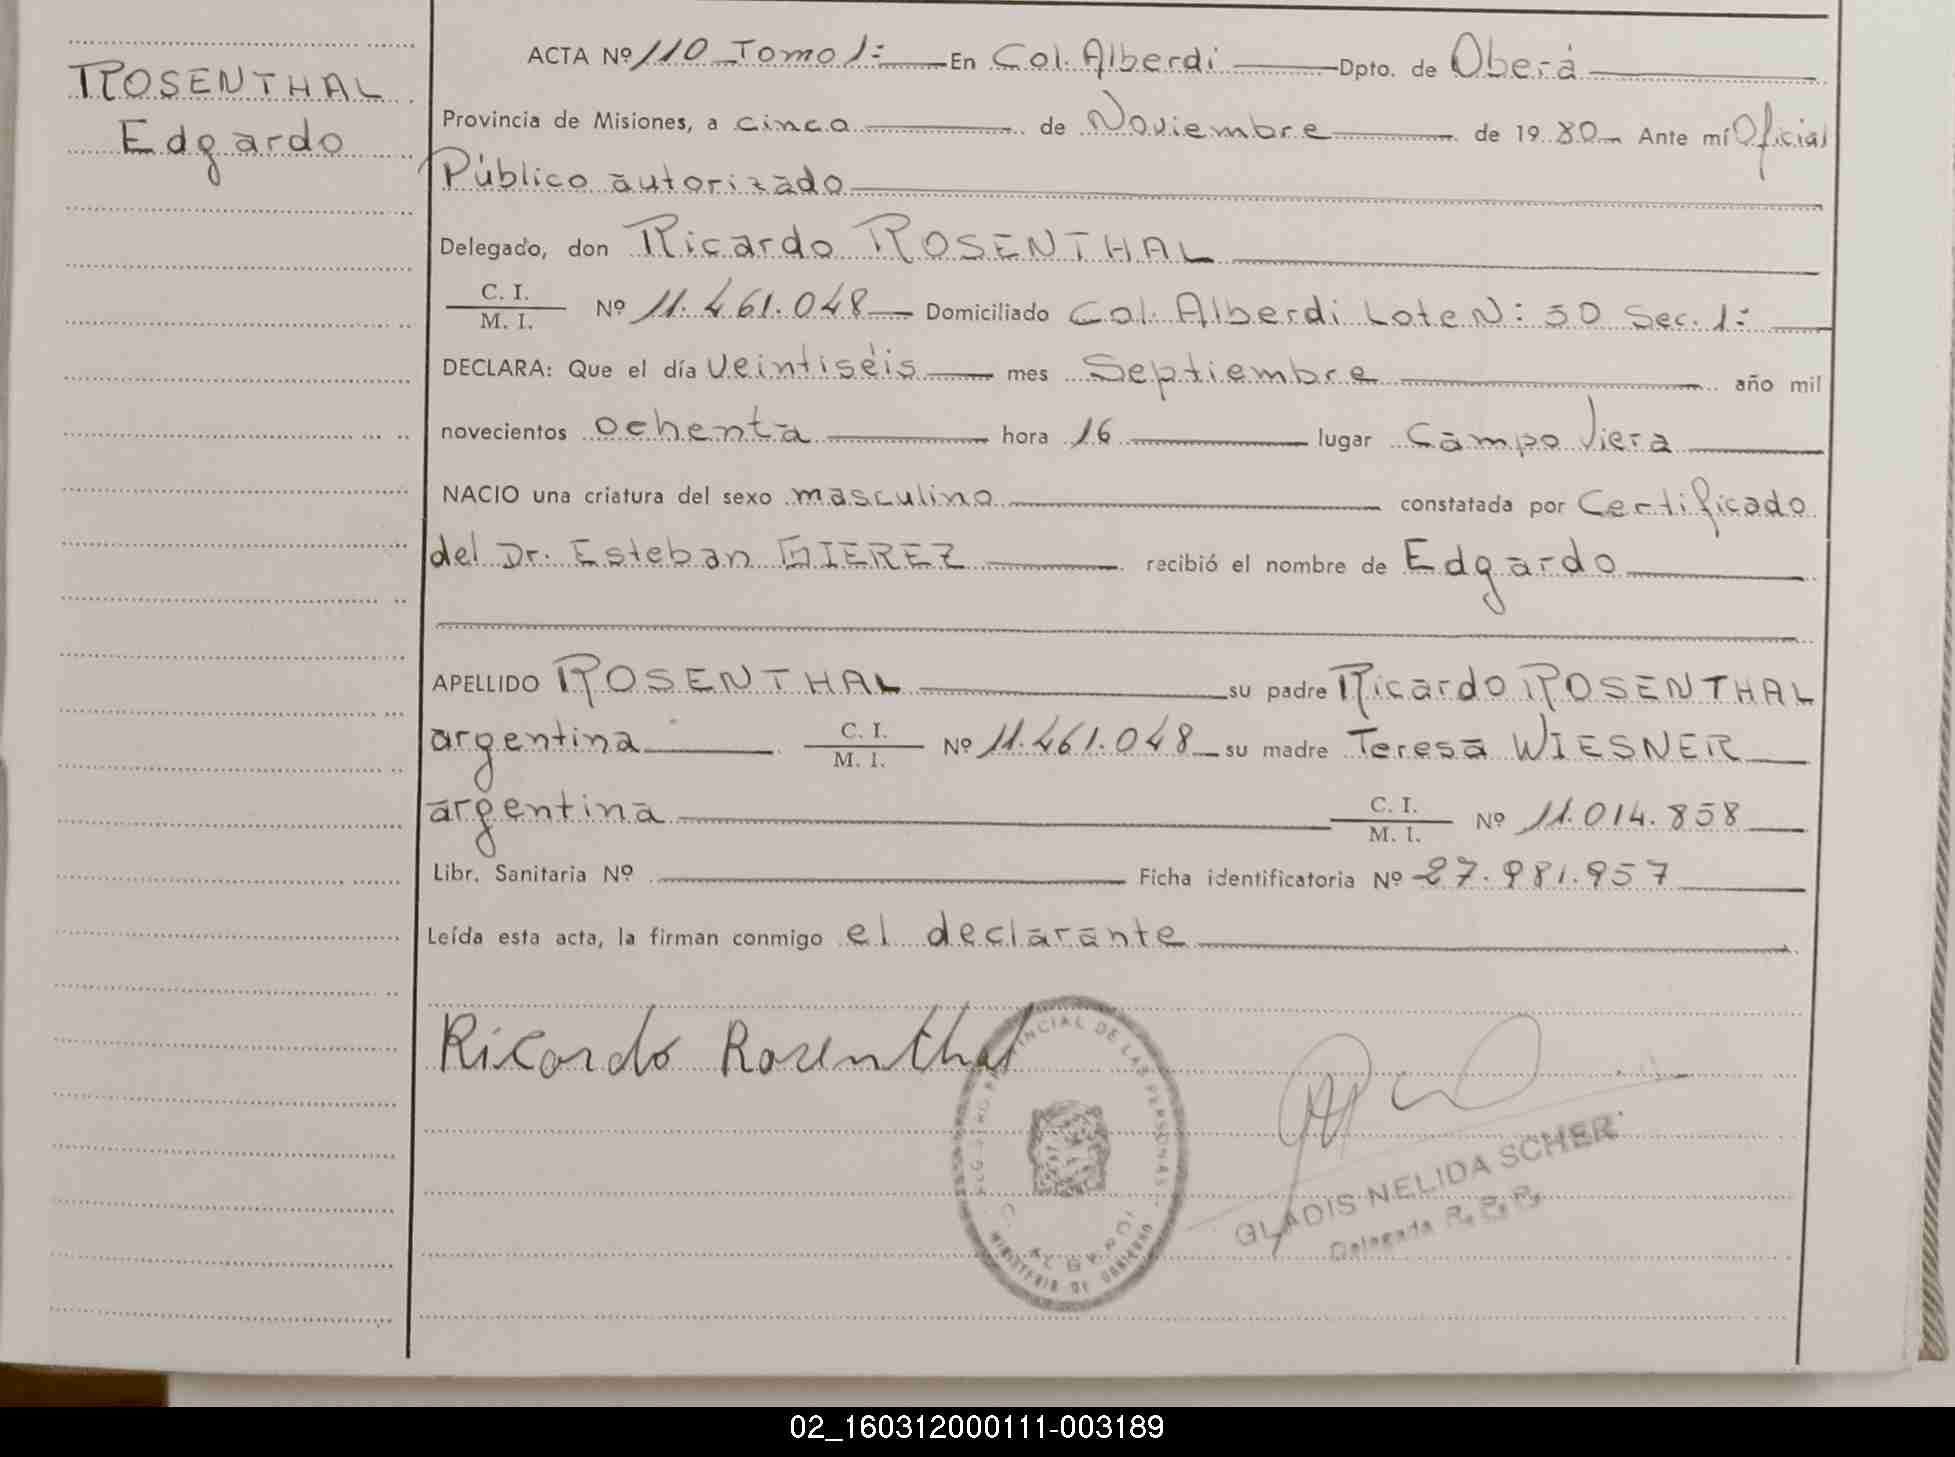 ROSENTHAL
Edgardo
ACTA Nº 110 Tomo 1: En Col. Alberdi Dpto. de Oberá
Provincia de Misiones, a cinco de Noviembre de 1980 Ante mí Oficial
Público autorizado
Delegado, don Ricardo ROSENTHAL
C. I.
M. I.
Nº 11.461.048 Domiciliado Col. Alberdi Lote N: 50 Sec. 1:
DECLARA: Que el día veintiséis mes Septiembre año mil
novecientos ochenta hora 16 lugar Campo Viera
NACIO una criatura del sexo masculino constatada por Certificado
del Dr. Esteban GIEREZ recibió el nombre de Edgardo
APELLIDO ROSENTHAL su padre Ricardo ROSENTHAL
argentina C. I. M. I. Nº 11.461.048 su madre Teresa WIESNER
argentina C. I. M. I. Nº 11.014.858
Libr. Sanitaria Nº Ficha identificatoria Nº 27.981.957
Leída esta acta, la firman conmigo el declarante
Ricardo Rosenthal
REGISTRO PROVINCIAL DE LAS PERSONAS
C. ALBERDI
MINISTERIO DE GOBIERNO
GLADIS NELIDA SCHER
Delegada R. P. P.
02_160312000111-003189